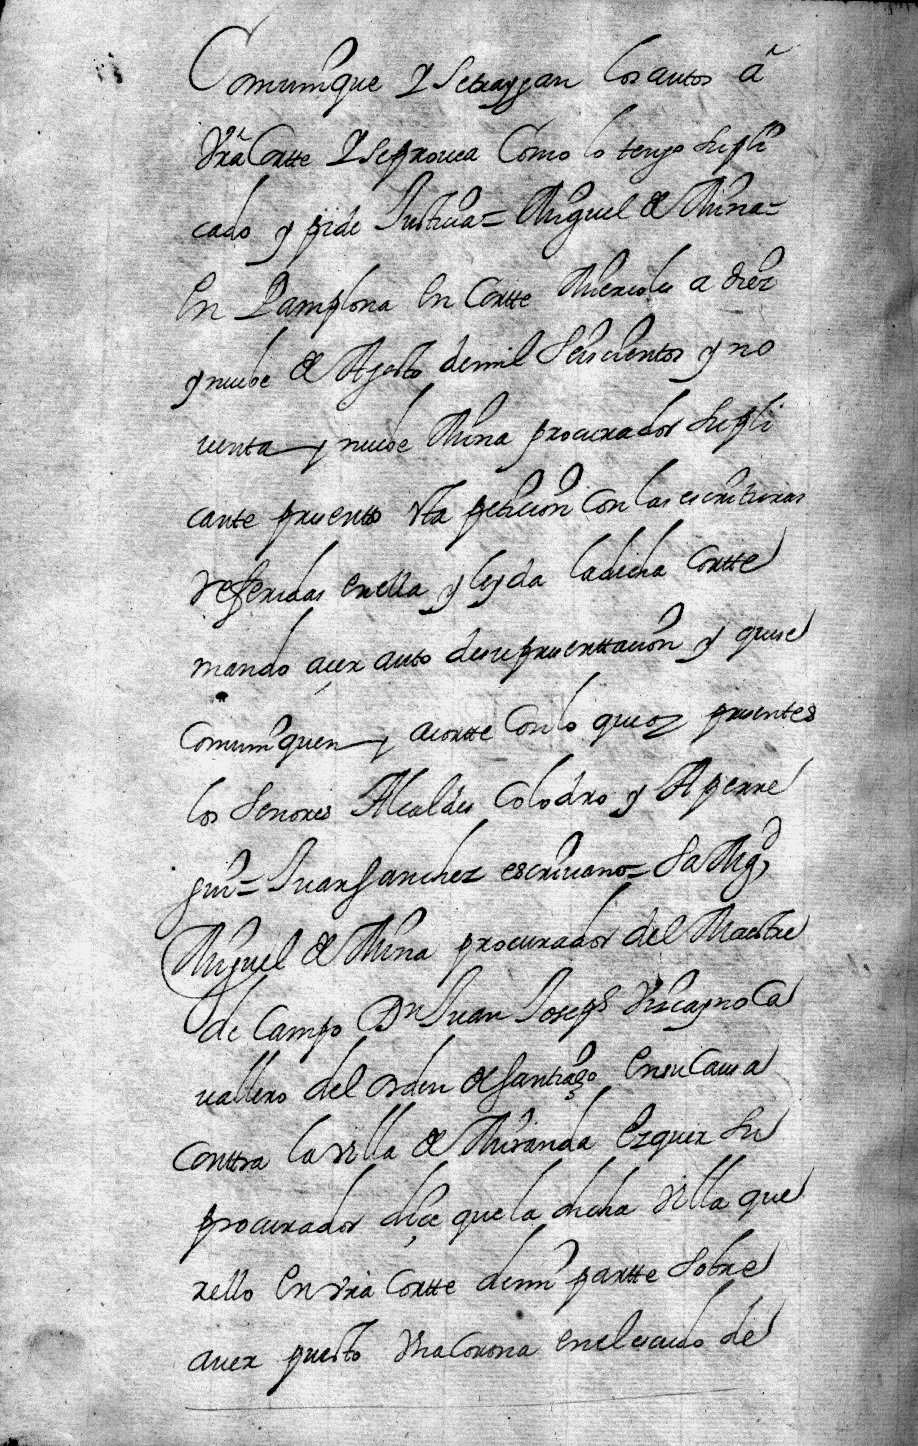 Comunique y se traygan los autos a
Vrã Cortte y se prouea como lo tengo supli
cado y pide Justicia = Miguel de Mina =
En Pamplona en Cortte Miercoles a diez
y nuebe de Agosto de mil seiscientos y no
uenta y nuebe Mina procurador supli
cante presento esta peticion con las escrituras
referidas en ella y leyda la dicha Cortte
mando açer auto de su presenttacion y que se
comuniquen y acortte con lo que
los Señores Alcaldes Colodro y Aperre
gui = Juan Sanchez escriuano = Sa Mgd,
Miguel de Mina procurador del Maestre
de Campo Dn Juan Joseph Vizcayno Ca
uallero del orden de Santiago en su Caussa
Conttra la villa de Miranda Ezquer su
procurador diçe que la dicha villa que
rello en vrã Cortte de mi partte sobre
auer puesto vna Corona en el escudo de